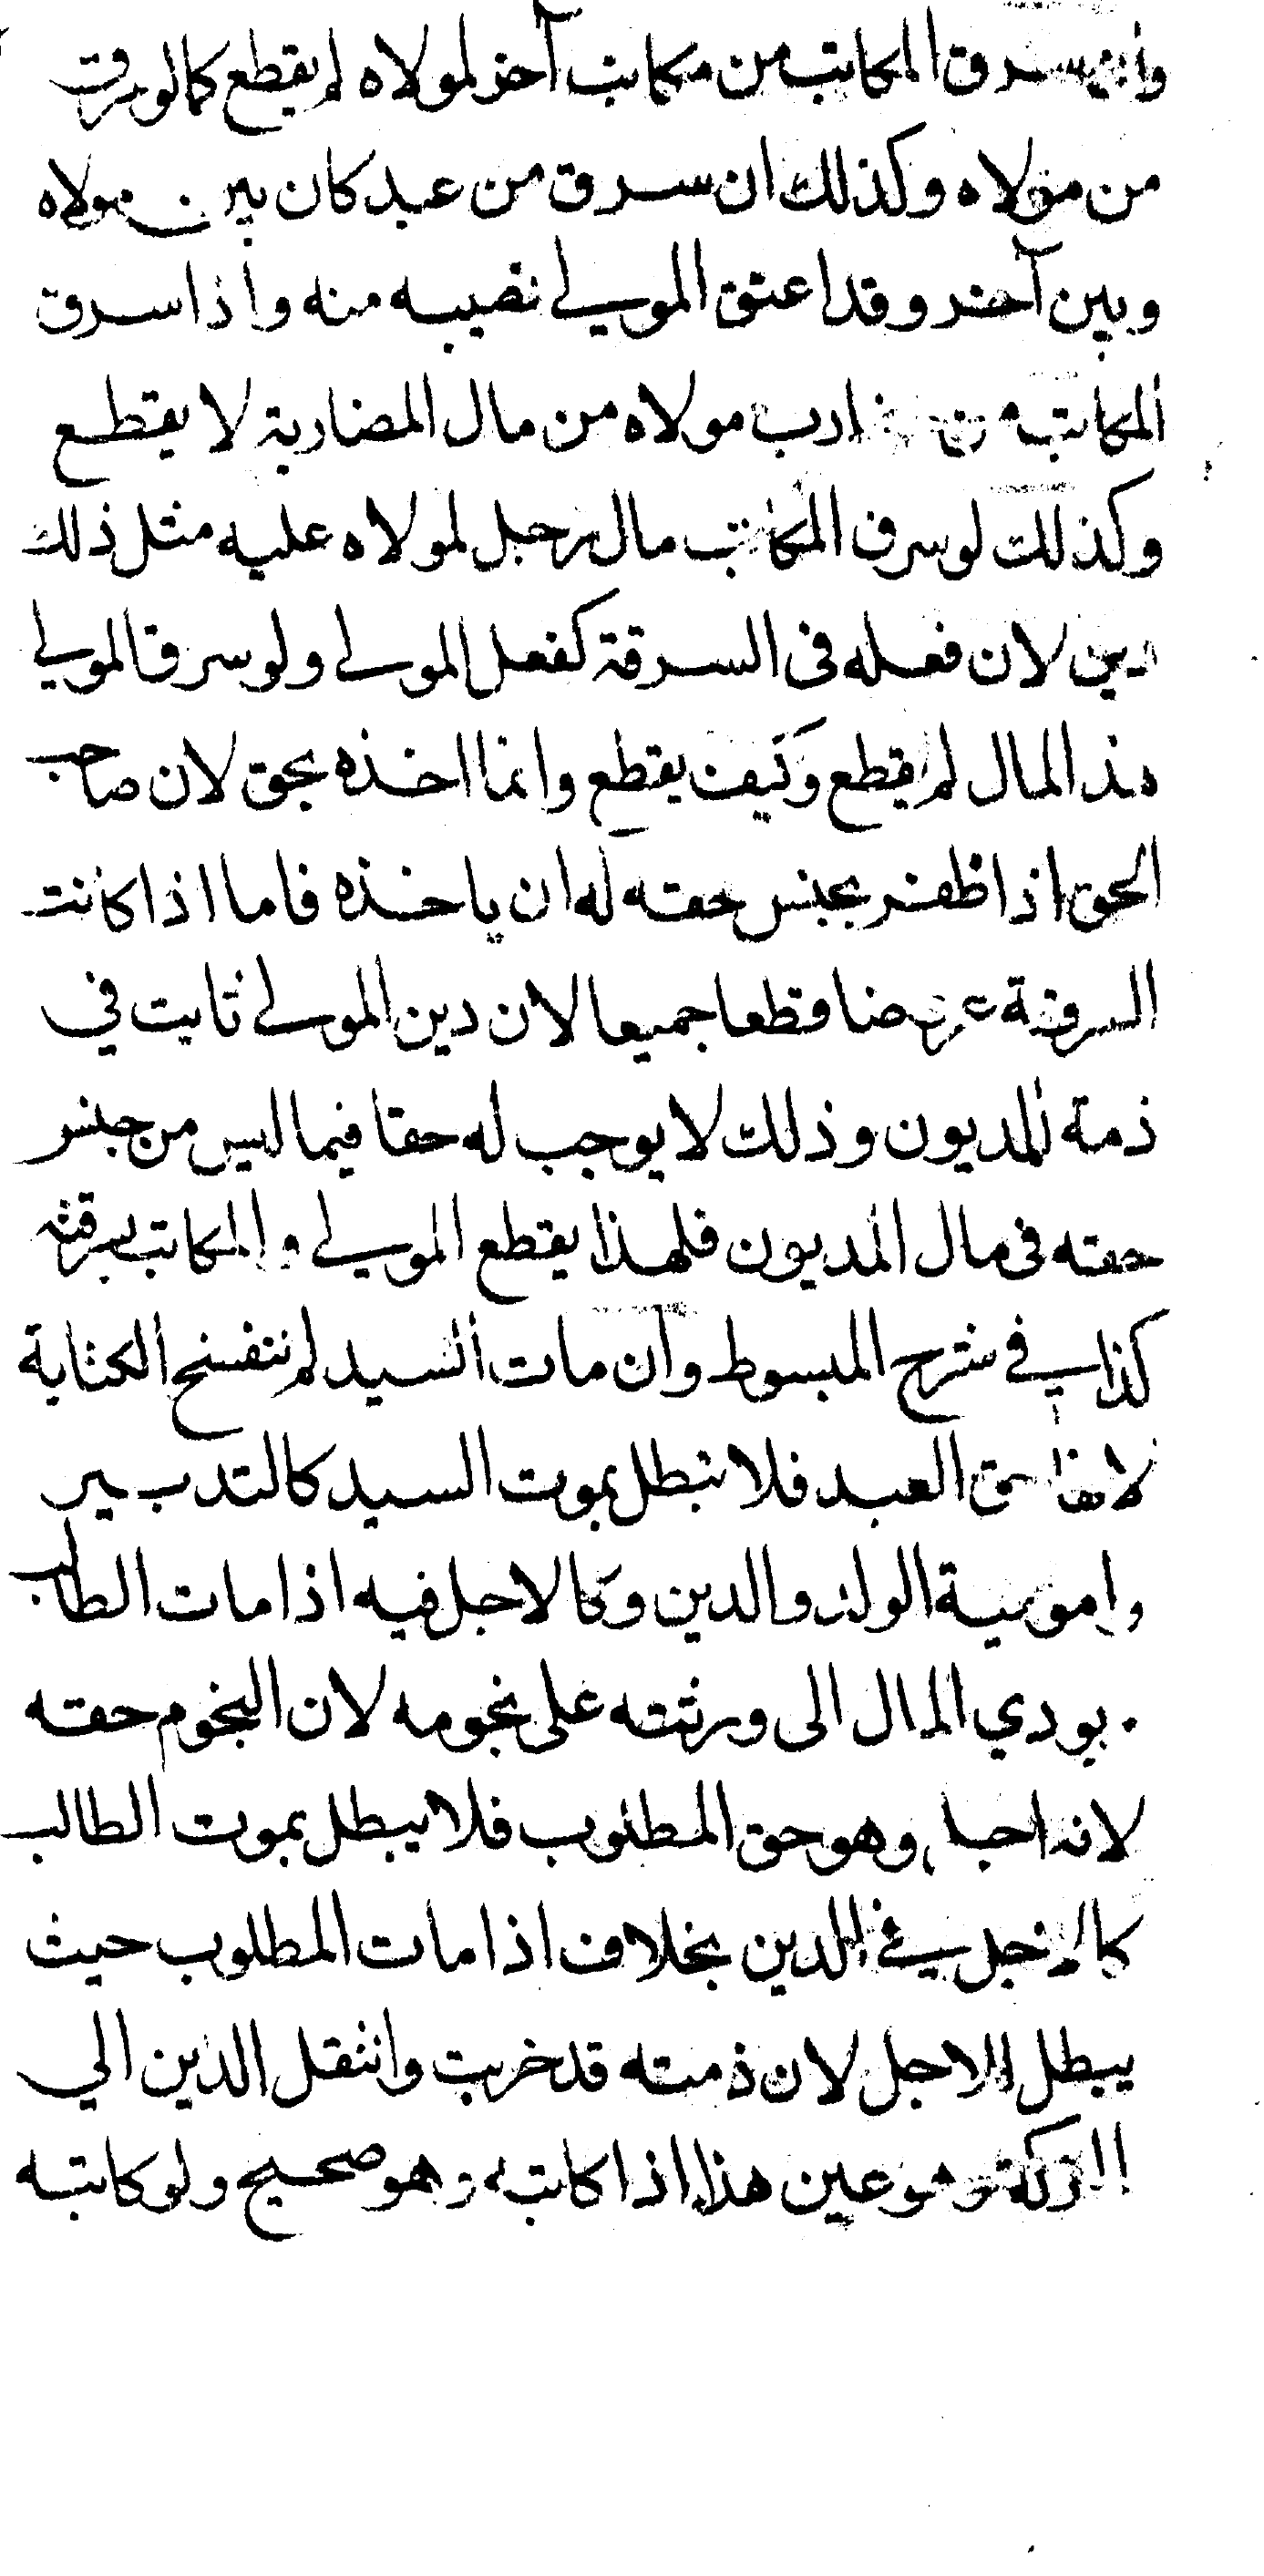 وان سرق المكاتب من مكاتب آخر لمولاه لم يقطع كما لو سرقت
من مولاه وكذلك ان سرق من عبد كان بين مولاه
وبين آخر وقد اعتق المولى نصيبه منه واذا سرق
المكاتب من مضارب مولاه من مال المضاربة لا يقطع
وكذلك لو سرق المكاتب مال رجل لمولاه عليه مثل ذلك
دين لان فعله فى السرقة كفعل المولى ولو سرق المولى
هذا المال لم يقطع وكيف يقطع وانما اخذه بحق لان صاحب
الحق اذا ظفر بجنس حقه له ان ياخذه فاما اذا كانت
السرقة عرضا قطعا جميعا لان دين المولى ثابت في
ذمة المديون وذلك لا يوجب له حقا فيما ليس من جنس
حقه فى مال المديون فلهذا يقطع المولى والمكاتب بسرقته
كذا في شرح المبسوط وان مات السيد لم تنفسخ الكتابة
لانها حق العبد فلا تبطل بموت السيد كالتدبير
وامومية الولد والدين وكالاجل فيه اذا مات الطالب
يودي المال الى ورثته على نجومه لان النجوم حقه
لانه اجل وهو حق المطلوب فلا يبطل بموت الطالب
كالاجل في الدين بخلاف اذا مات المطلوب حيث
يبطل الاجل لان ذمته قد خربت وانتقل الدين الي
التركة وهو عين هذا اذا كاتبه وهو صحيح ولو كاتبه